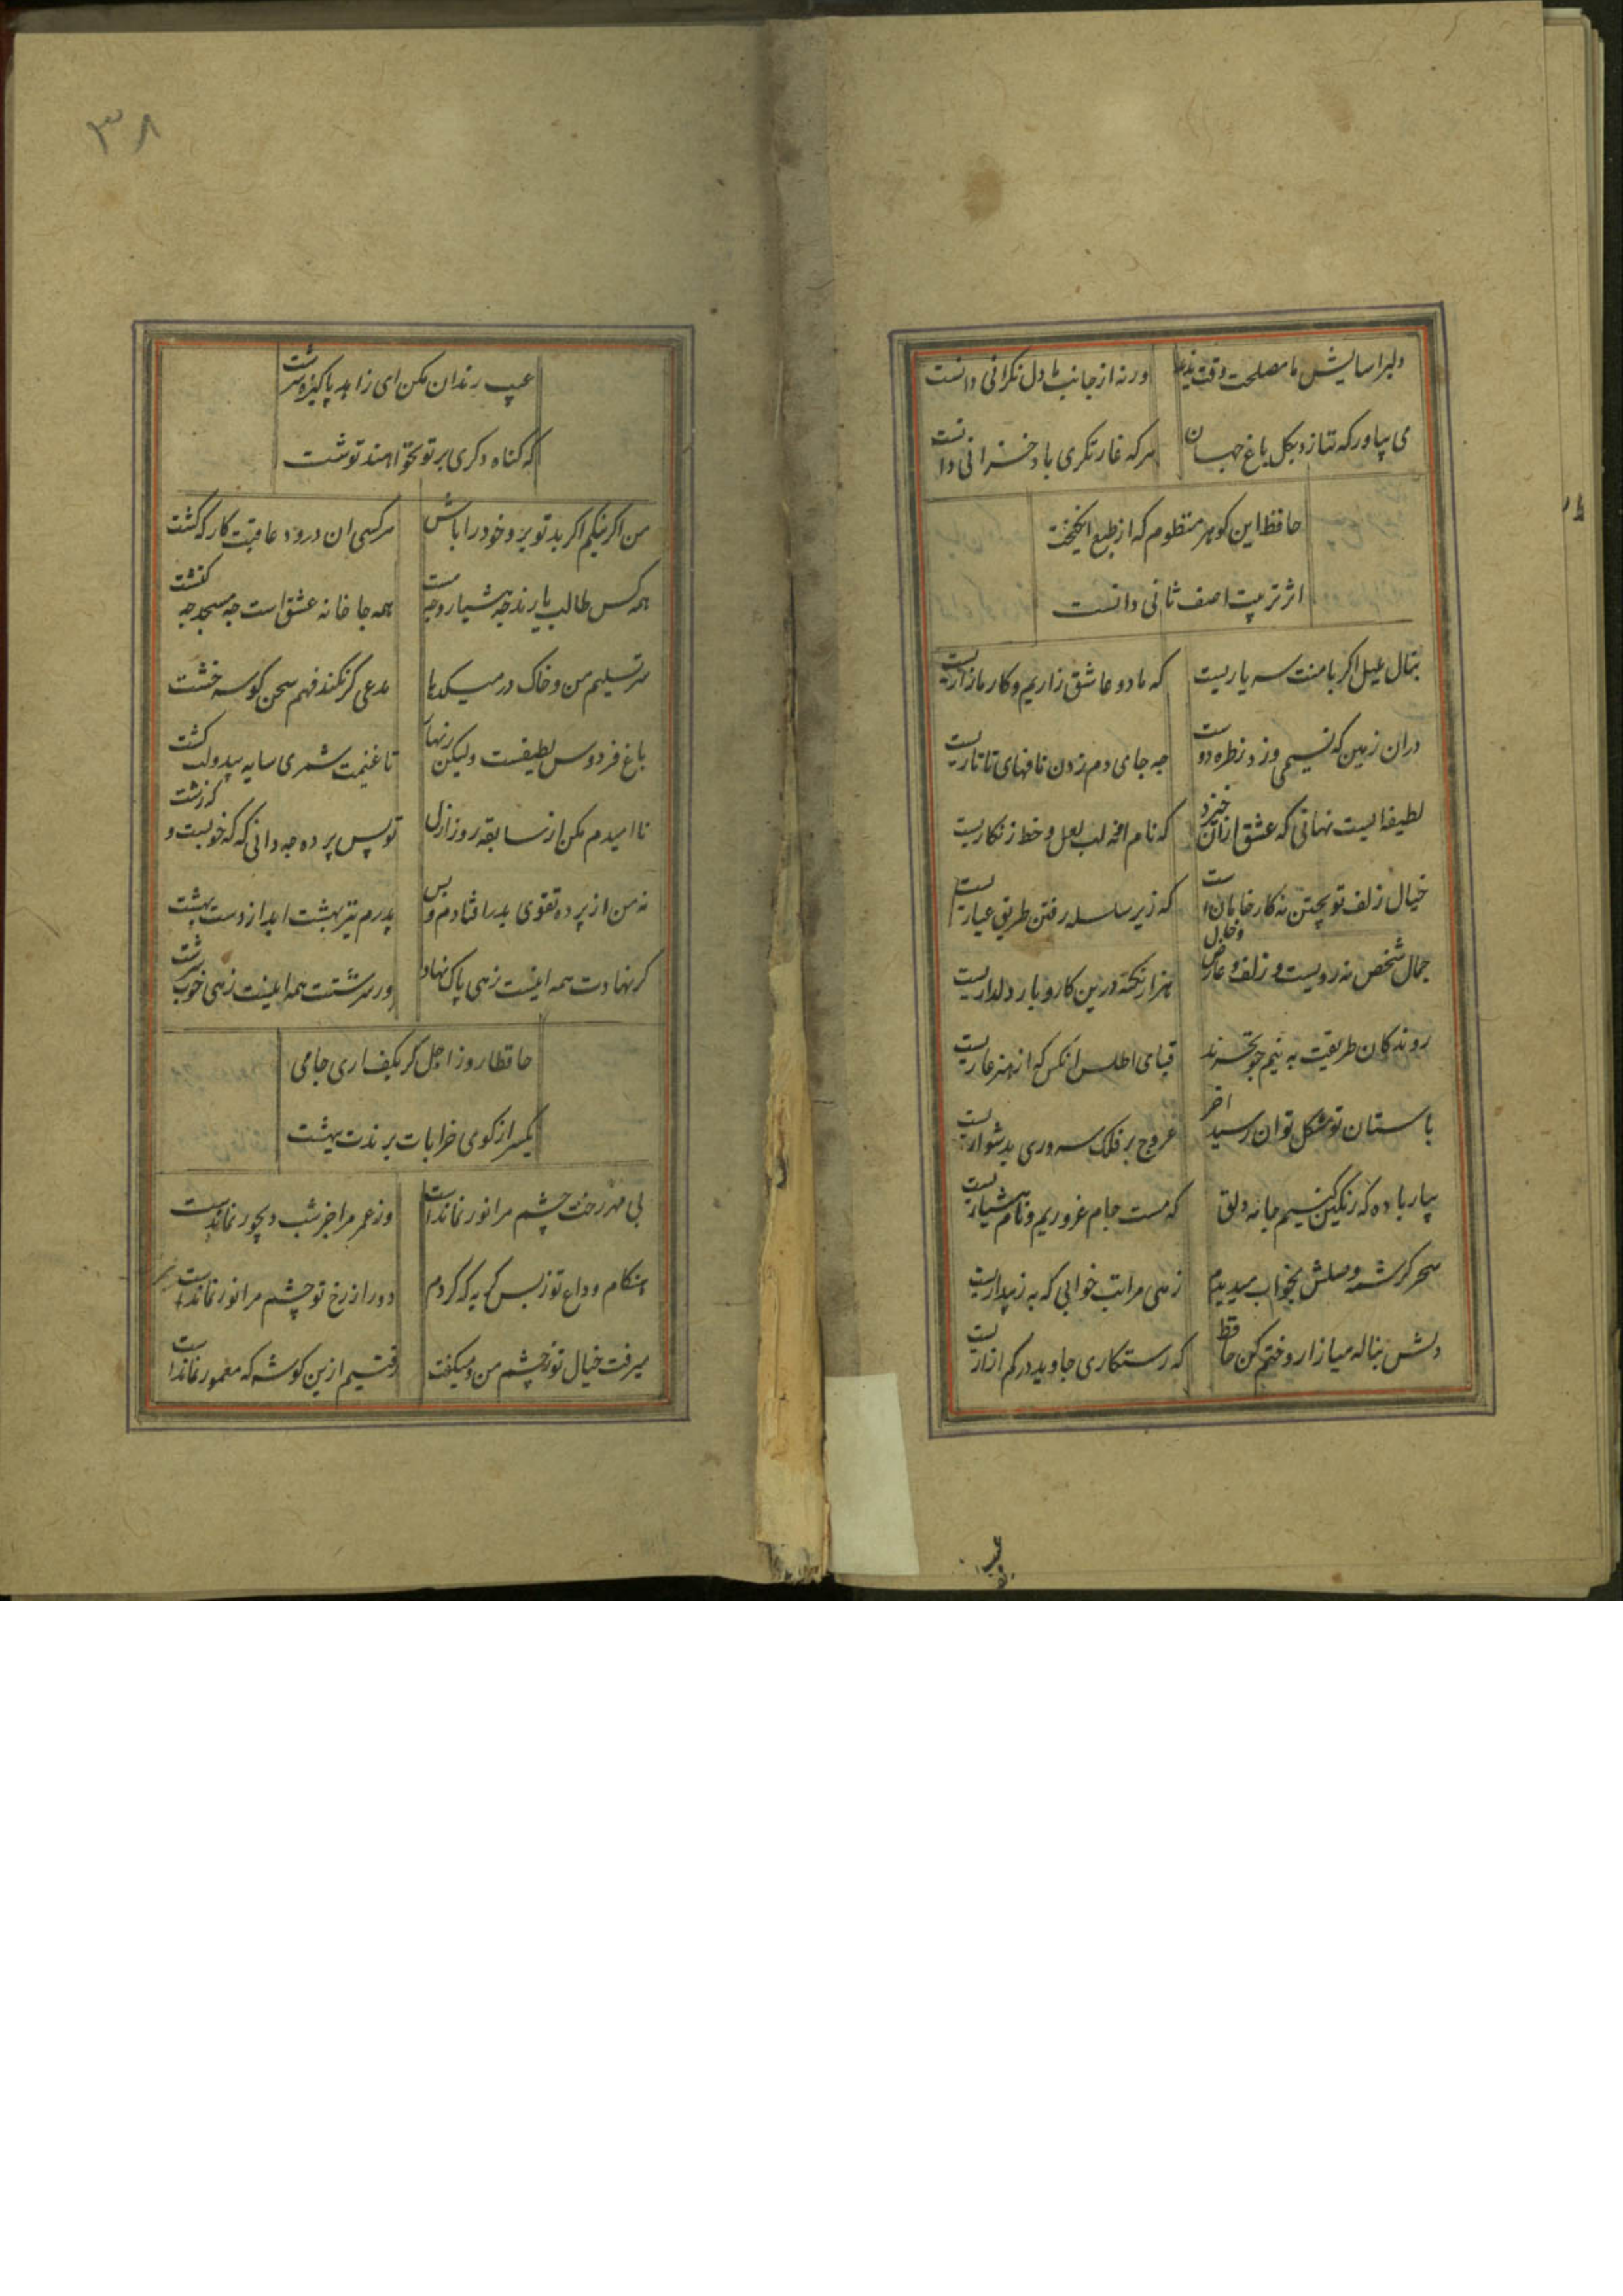 دلبر اسایش ما مصلحت وقت ندید
ورنه از جانب ما دل نکرانی دانست
می بیاور که ننازد بکل باغ جهان
هرکه غارتکری باد خزانی دانست
حافظ این کوهر منظوم که از طبع انکیخت
اثر تربیت اصف ثانی دانست
بنال بلبل اکر با منت سر یاریست
که ما دو عاشق زاریم و کار ما زاریست
دران زمین که نسیمی وزد ز طره دوست
جه جای دم زدن نافهای تاتاریست
لطیفه ایست نهانی که عشق ازان خیزد
که نام انه لب لعل و خط زنکاریست
خیال زلف تو پختن نه کار خامانست
که زیر سلسله رفتن طریق عیاریست
جمال شخص نه رویست و زلف و عارض و خال
هزار نکته درین کاروبار دلداریست
روندکان طریقت به نیم جو نخرند
قبای اطلس انکس که از هنر عاریست
باستان تو مشکل توان رسید اخر
عروج بر فلک سروری بدشواریست
بیار باده که رنکین کنیم جامه دلق
که مست جام غروریم و نام هشیاریست
سحر کرشمه وصلش بخواب میدیدم
زهی مراتب خوابی که به ز بیداریست
دلش بناله میازار و ختم کن حافظ
که رستکاری جاوید در کم ازاریست
۳۸
عیب رندان مکن ای زاهد پاکیزه سرشت
که کناه دکری بر تو نخواهند نوشت
من اکر نیکم اکر بد تو برو خود را باش
هر کسی ان درود عاقبت کار که کشت
همه کس طالب یارند جه هشیار و جه مست
همه جا خانه عشق است جه مسجد جه کنشت
سر تسلیم من و خاک در میکدها
مدعی کر نکند فهم سخن کو سر خشت
باغ فردوس لطیفست ولیکن زنهار
تا غنیمت شمری سایه بید و لب کشت
نا امیدم مکن از سابقه روز ازل
تو پس پرده جه دانی که که خوبست و که زشت
نه من از پرده تقوی بدر افتادم و بس
پدرم نیز بهشت ابد از دست بهشت
کر نهادت همه اینست زهی پاک نهاد
ور سرشتت همه اینست زهی خوب سرشت
حافظا روز اجل کر بکف اری جامی
یکسر از کوی خرابات برندت ببهشت
بی مهر رخت چشم مرا نور نماندست
وز عمر مرا جز شب دیجور نماندست
هنکام وداع تو ز بس کریه که کردم
دور از رخ تو چشم مرا نور نماندست
میرفت خیال تو ز چشم من و میکفت
رفتیم ازین کوشه که معمور نماندست